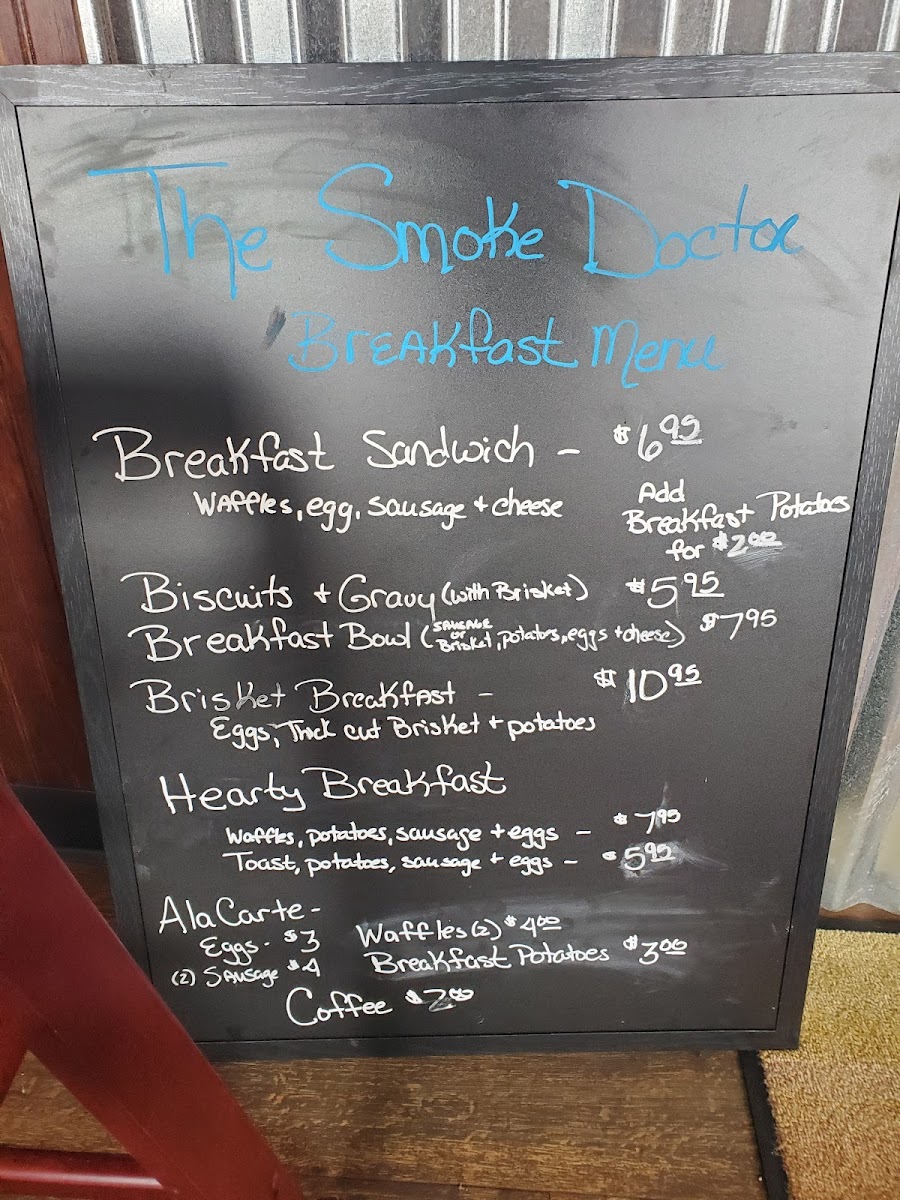 The Smoke Doctor
Breakfast Menu
Breakfast Sandwich - $6.95
Waffles, egg, sausage + cheese
Add
Breakfast Potatoes
for $2.00
Biscuits + Gravy (with Brisket) $5.95
Breakfast Bowl (sausage or Brisket, potatoes, eggs + cheese) $7.95
Brisket Breakfast - $10.95
Eggs, Thick cut Brisket + potatoes
Hearty Breakfast
Waffles, potatoes, sausage + eggs - $7.95
Toast, potatoes, sausage + eggs - $5.95
Ala Carte -
Eggs - $3 Waffles (2) $4.00
(2) Sausage $4 Breakfast Potatoes $3.00
Coffee $2.00